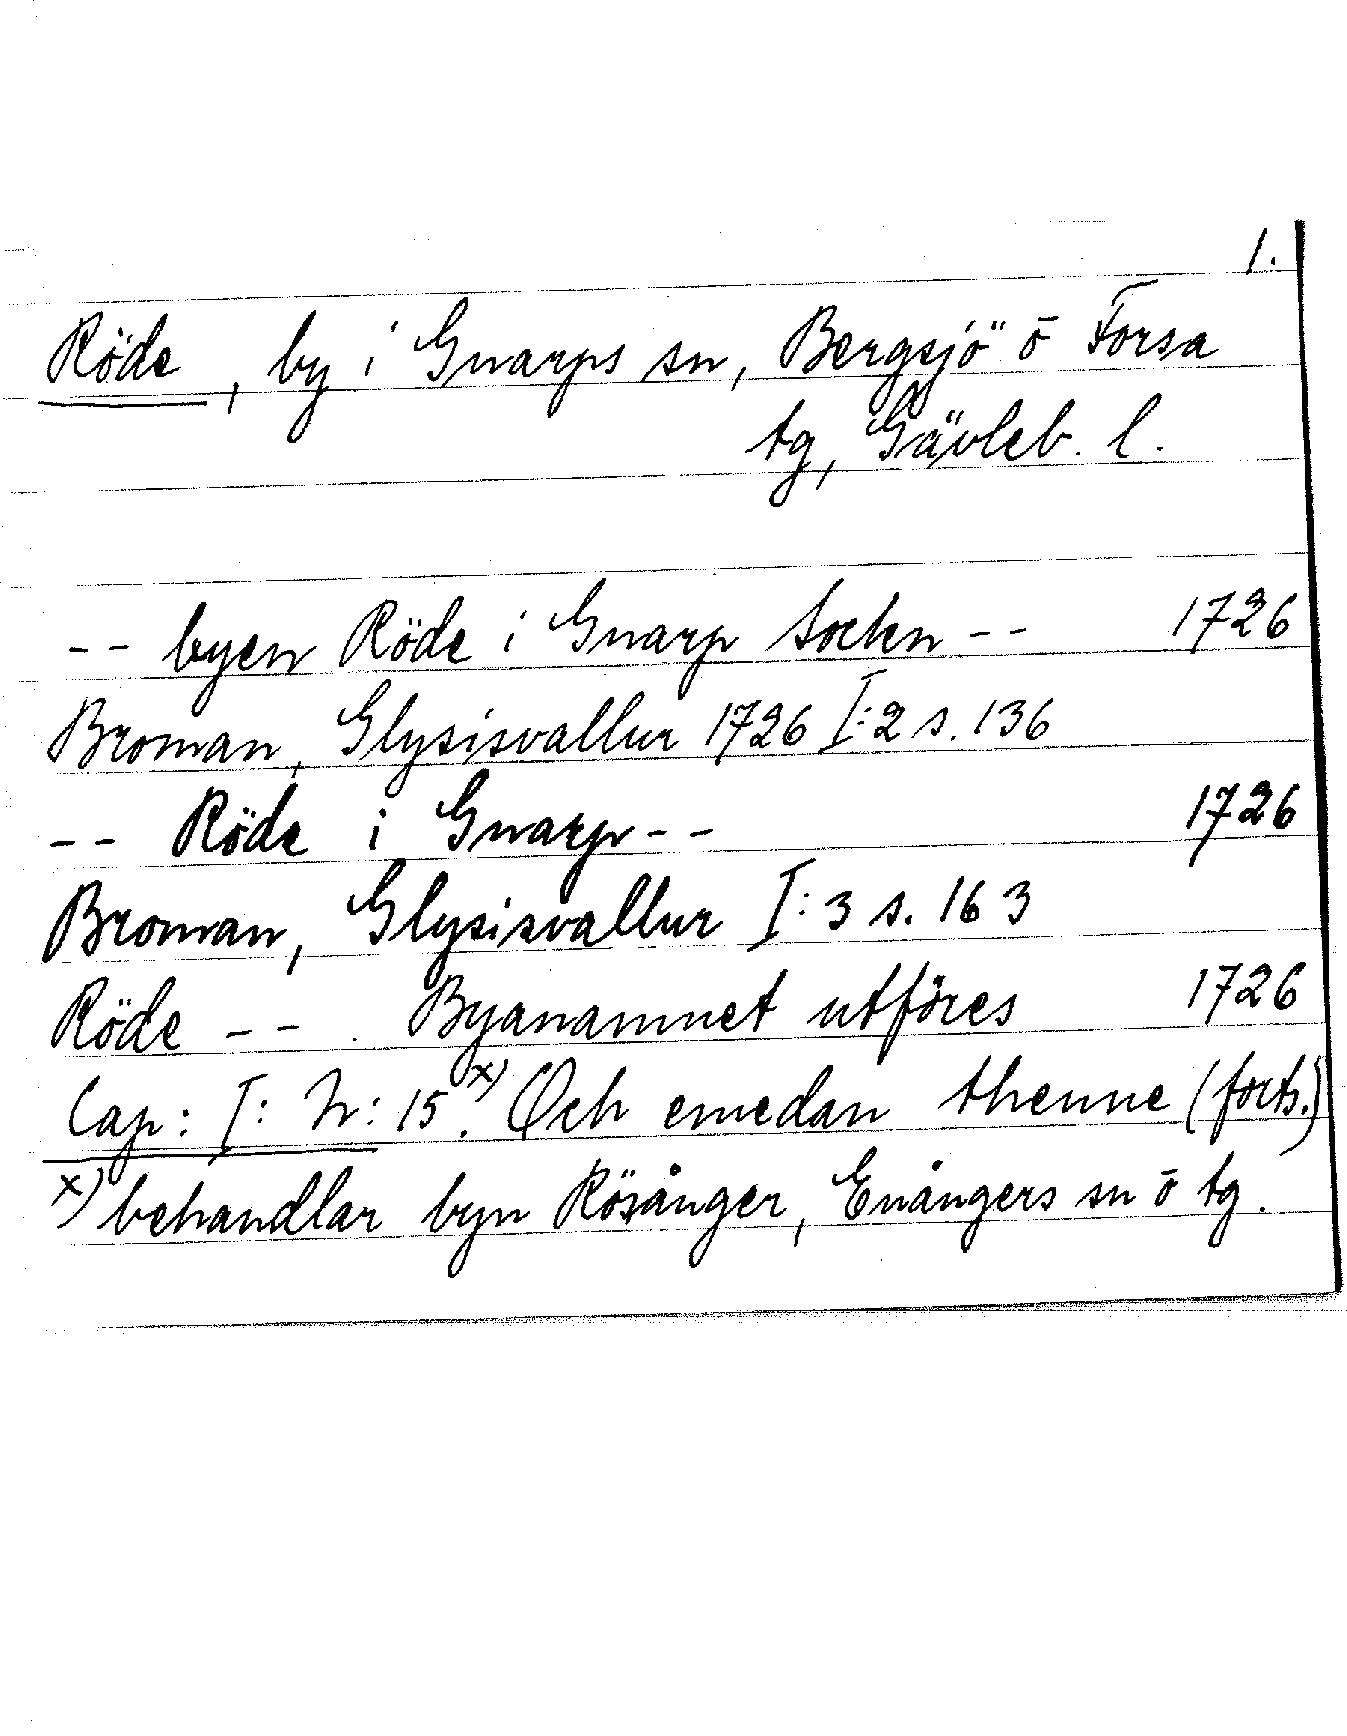 1.
Röde, by i Gnarps sn, Bergsjö o Forsa
tg, Gävleb. l.
-- byen Röde i Gnarp Sockn -- 1726
Broman, Glysisvallur 1726 I:2 s. 136
-- Röde i Gnarp -- 1726
Broman, Glysisvallur I:3 s. 163
Röde -- . Byanamnet utföres 1726
Cap: I: N: 15.x) Och emedan thenne (forts.)
x) behandlar byn Rösånger, Enångers sn o tg.